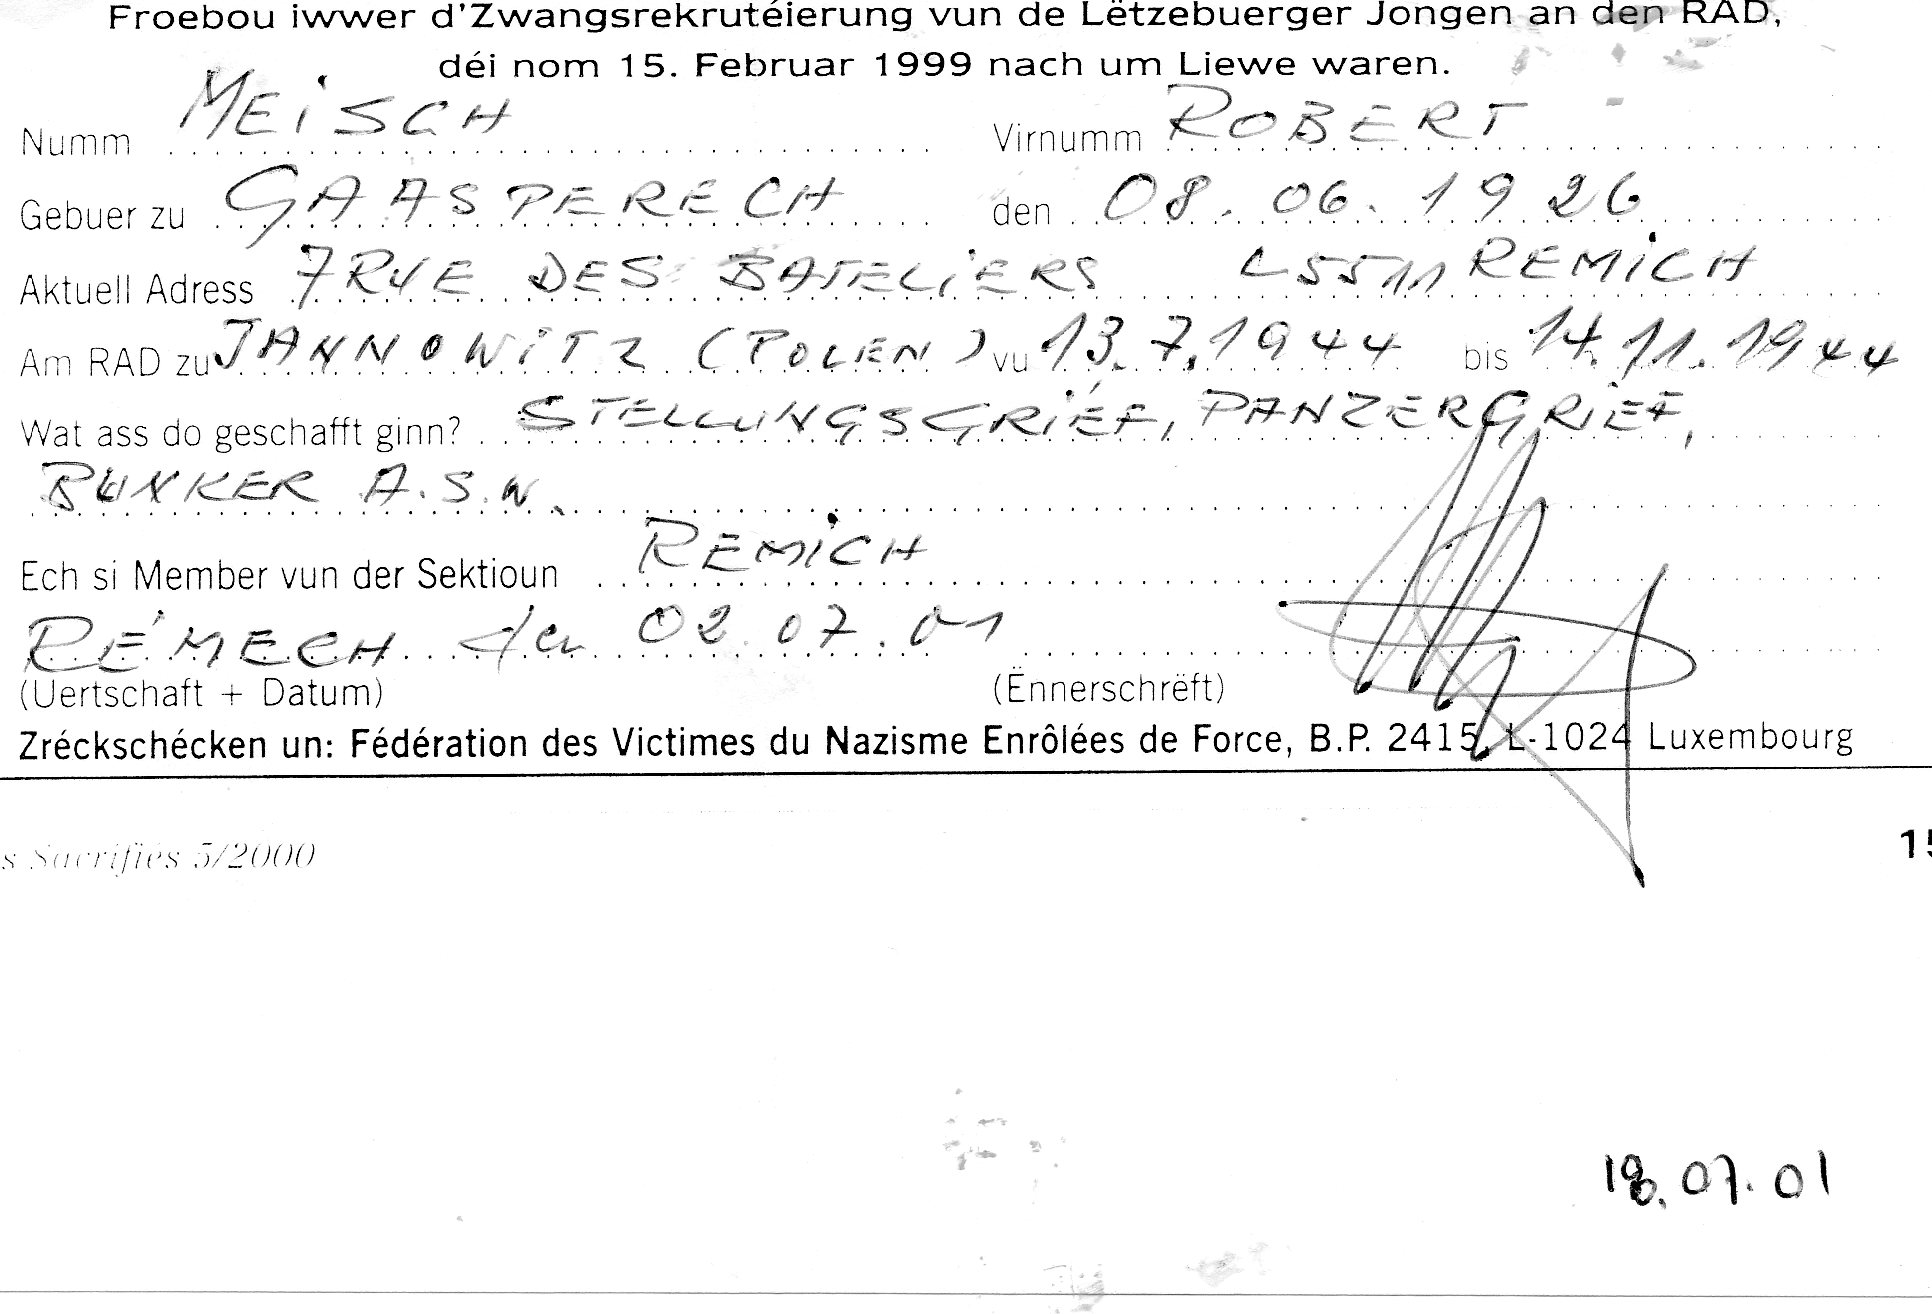 Froebou iwwer d'Zwangsrekrutéierung vun de Lëtzebuerger Jongen an den RAD,
déi nom 15. Februar 1999 nach um Liewe waren.
Numm MEISCH Virnumm ROBERT
Gebuer zu GAASPERECH den 08.06.1926
Aktuell Adress 7 RUE DES BATELIERS L 5511 REMICH
Am RAD zu JANNOWITZ (POLEN) vu 13.7.1944 bis 14.11.1944
Wat ass do geschafft ginn? STELLUNGSGRIEF, PANZERGRIEF,
BUNKER A.S.W.
Ech si Member vun der Sektioun REMICH
RÉMECH den 02.07.01
(Uertschaft + Datum) (Ënnerschrëft)
Zréckschécken un: Fédération des Victimes du Nazisme Enrôlées de Force, B.P. 2415, L-1024 Luxembourg
s Sacrifiés 5/2000 15
18.07.01